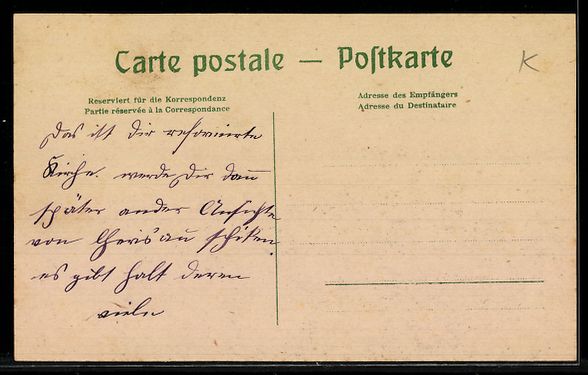 Carte postale — Postkarte
K
Reserviert für die Korrespondenz
Partie réservée à la Correspondance
Adresse des Empfängers
Adresse du Destinataire
Das ist die reformierte
Kirche. werde Dir dann
später ander Ansichte
von Cherisau schiken.
es gibt halt deren
viele